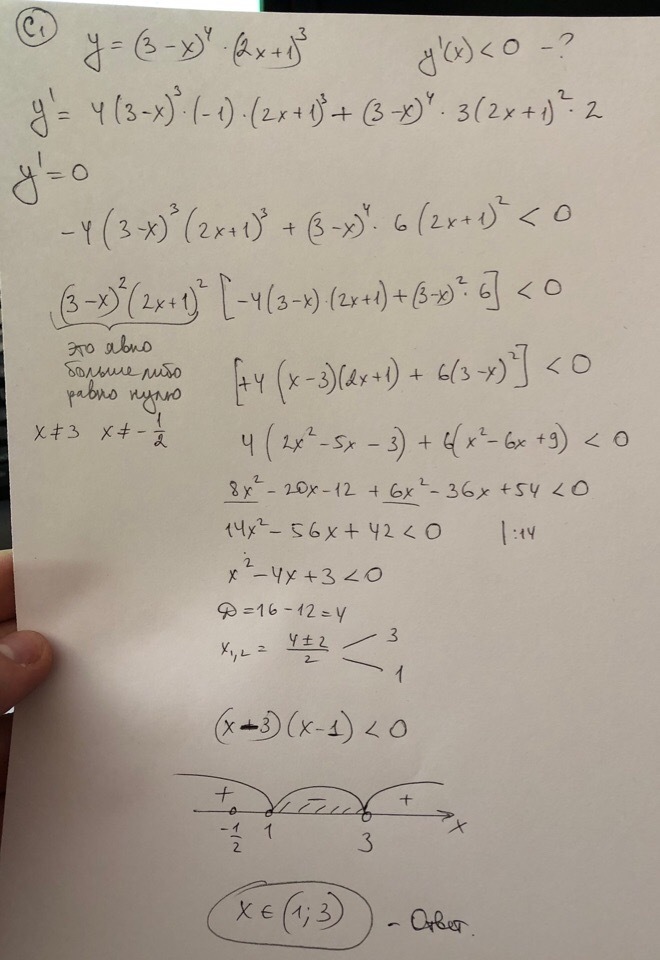 C1
y = (3-x)⁴ · (2x+1)³     y'(x) < 0 - ?
y' = 4(3-x)³·(-1)·(2x+1)³ + (3-x)⁴ · 3(2x+1)² · 2
y' = 0
-4(3-x)³(2x+1)³ + (3-x)⁴ · 6(2x+1)² < 0
(3-x)²(2x+1)² [-4(3-x)·(2x+1) + (3-x)² · 6] < 0
это явно
больше либо
равно нулю
x ≠ 3  x ≠ -1/2
[+4(x-3)(2x+1) + 6(3-x)²] < 0
4(2x²-5x-3) + 6(x²-6x+9) < 0
8x² - 20x - 12 + 6x² - 36x + 54 < 0
14x² - 56x + 42 < 0     |:14
x² - 4x + 3 < 0
D = 16 - 12 = 4
x₁,₂ = (4±2)/2  3
1
(x-3)(x-1) < 0
+ - +
-1/2 1 3 x
x ∈ (1; 3) - Ответ.